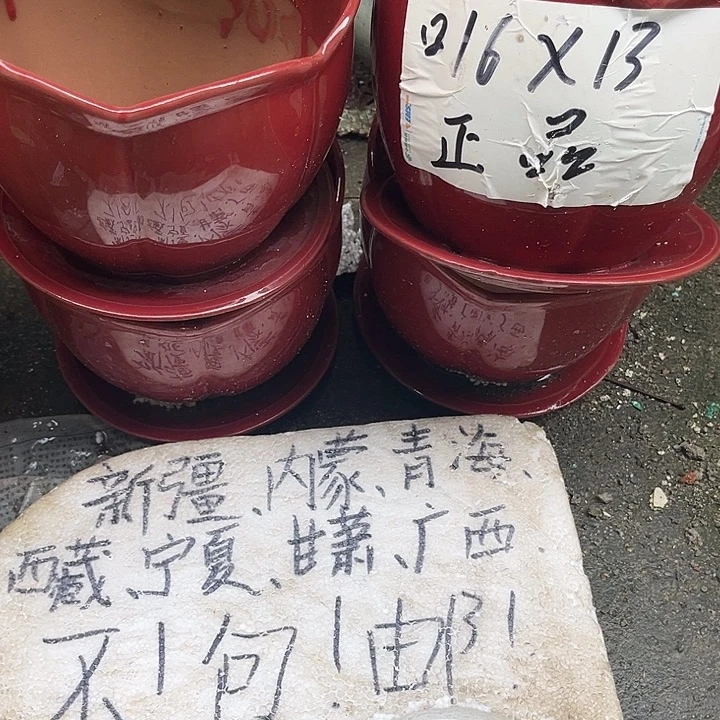 口16X13
正品
新疆、内蒙、青海、
西藏、宁夏、甘萧、广西
不！包！邮！